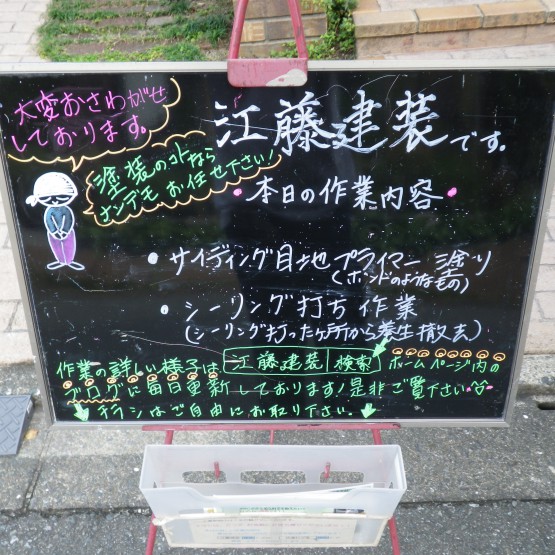 大変おさわがせ
しております。
江藤建装です。
塗装のコトなら
ナンデモお任せ下さい!
・本日の作業内容・
・サイディング目地プライマー塗り
(ボンドのようなもの)
・シーリング打ち作業
(シーリング打ったヶ所から養生撤去)
作業の詳しい様子は 江藤建装 検索 ホームページ内の
ブログに毎日更新しております!是非ご覧下さい
チラシはご自由にお取り下さい。